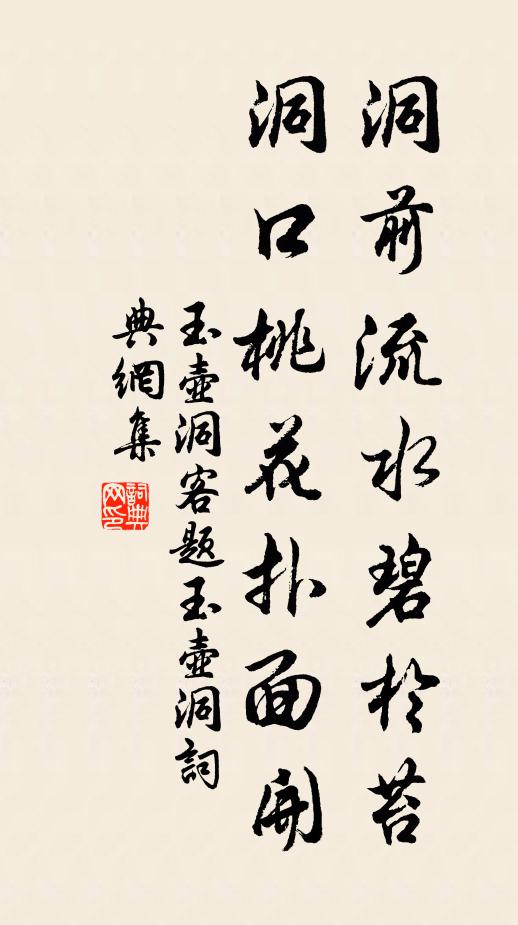 洞前流水碧於苔
洞口桃花扑面開
玉壺洞客題玉壺洞詞
典網集
詞典
网印